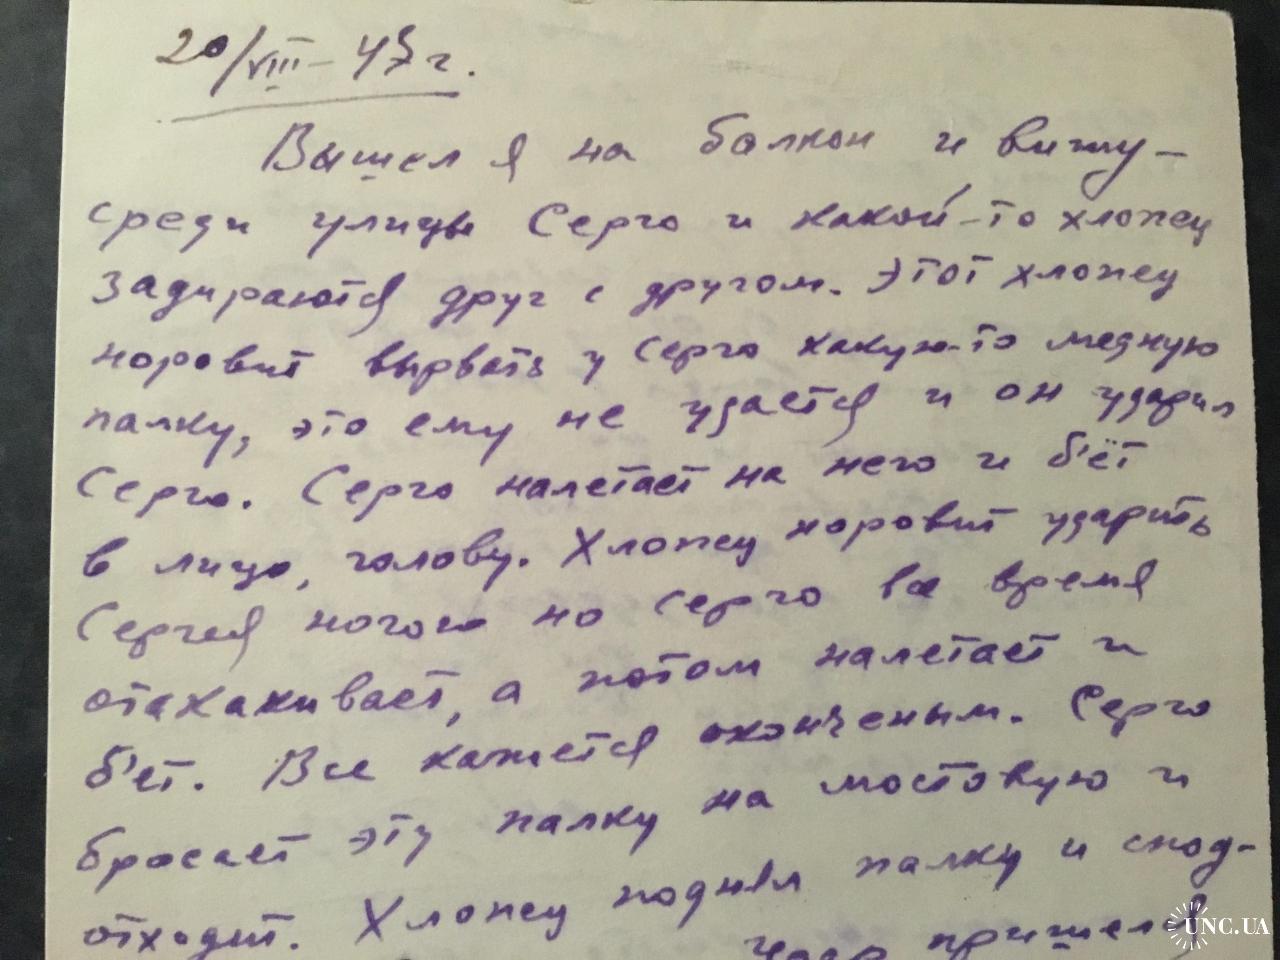 20/VIII – 43 г.
Вышел я на балкон и вижу –
среди улицы Серго и какой-то хлопец
задираются друг с другом. Этот хлопец
норовит вырвать у Серго какую-то медную
палку, это ему не удается и он ударил
Серго. Серго налетает на него и б'ёт
в лицо, голову. Хлопец норовит ударить
Сергея ногою но Серго все время
отскакивает, а потом налетает и
б'ет. Все кажется оконченым. Серго
бросает эту палку на мостовую и
отходит. Хлопец поднял палку и спод-
пришелся
UNC.UA